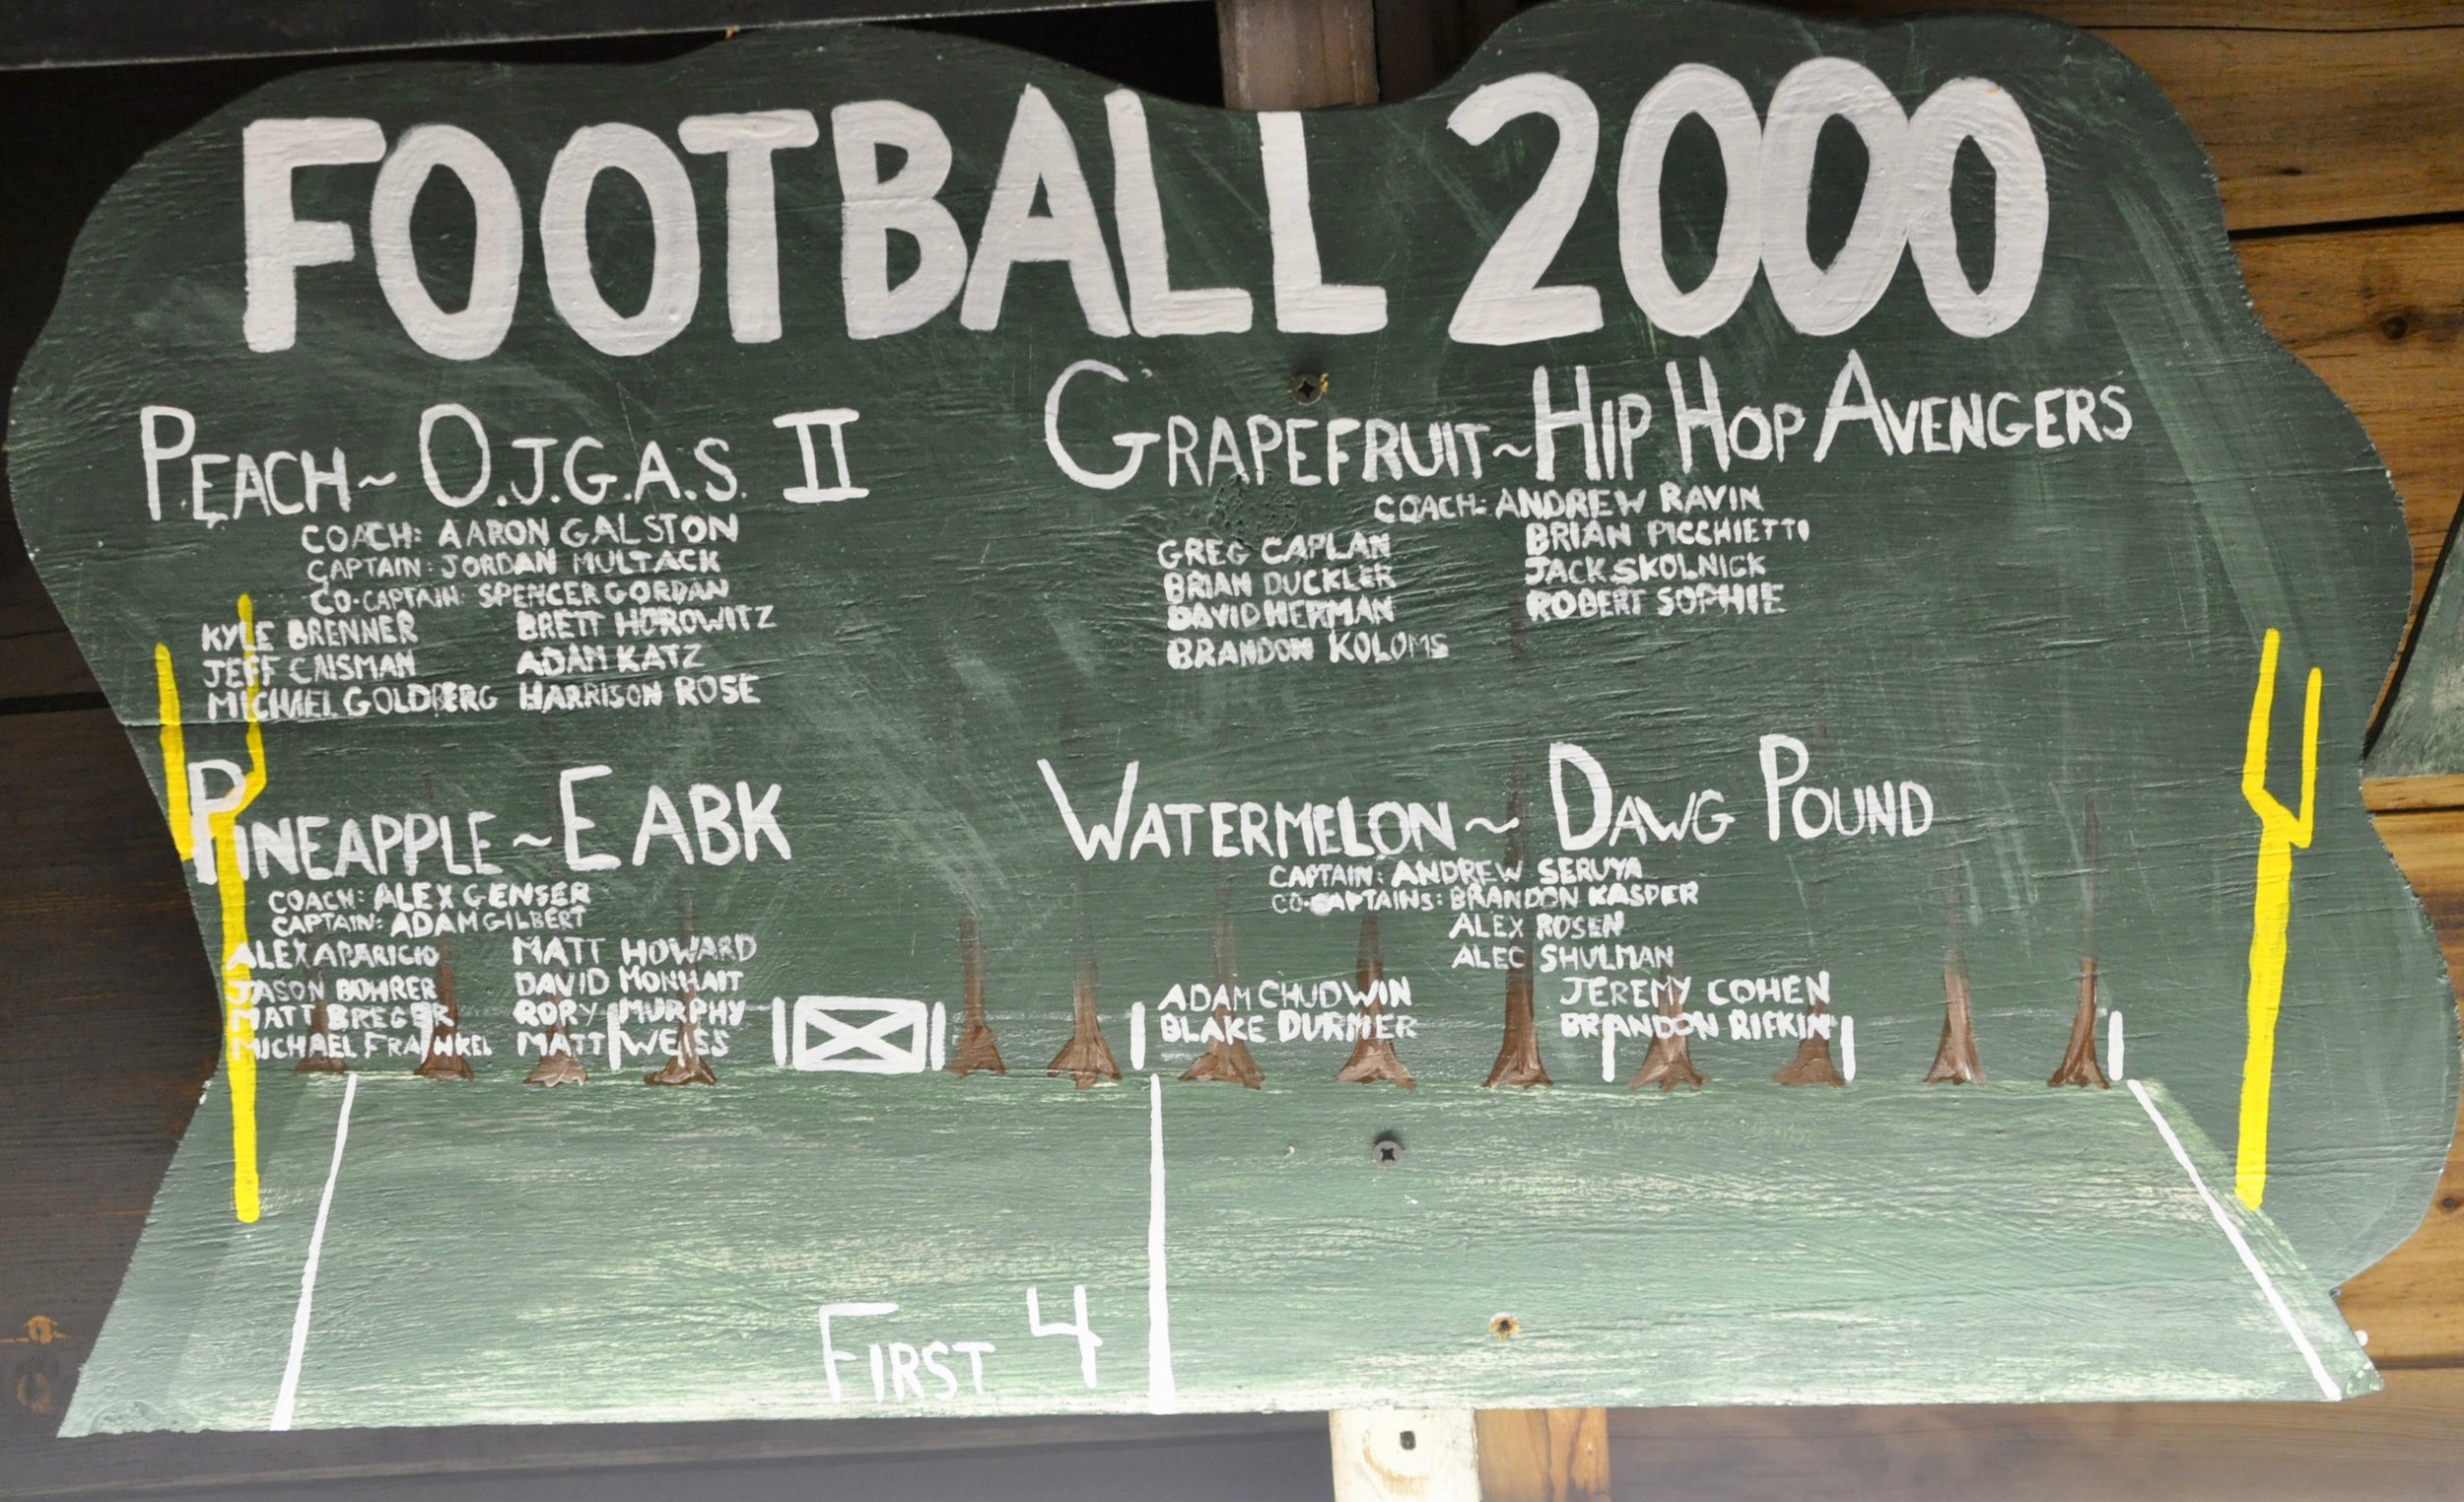 FOOTBALL 2000
PEACH~ O.J.G.A.S. II
COACH: AARON GALSTON
CAPTAIN: JORDAN MULTACK
CO-CAPTAIN: SPENCER GORDAN
KYLE BRENNER BRETT HOROWITZ
JEFF CAISMAN ADAM KATZ
MICHAEL GOLDBERG HARRISON ROSE
GRAPEFRUIT~HIP HOP AVENGERS
COACH: ANDREW RAVIN
GREG CAPLAN BRIAN PICCHIETTI
BRIAN DUCKLER JACK SKOLNICK
DAVID HERMAN ROBERT SOPHIE
BRANDON KOLOMS
PINEAPPLE~EABK
COACH: ALEX GENSER
CAPTAIN: ADAM GILBERT
ALEX APARICIO MATT HOWARD
JASON BOHRER DAVID MONHAIT
MATT BREGER RORY MURPHY
MICHAEL FRANKEL MATT WEISS
WATERMELON~ DAWG POUND
CAPTAIN: ANDREW SERUYA
CO-CAPTAINS: BRANDON KASPER
ALEX ROSEN
ALEC SHULMAN
ADAM CHUDWIN JEREMY COHEN
BLAKE DURMER BRANDON RIFKIN
FIRST 4